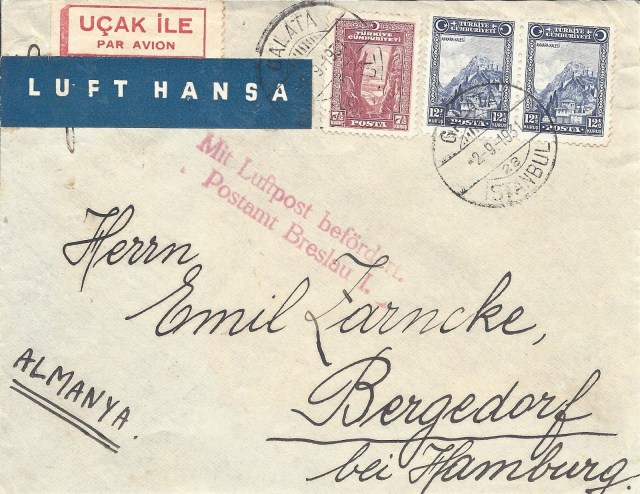 UÇAK İLE
PAR AVION
LUFT HANSA
GALATA
TÜRKİYE
CUMHURİYETİ
7½ 7½
KURUŞ KURUŞ
POSTA
TÜRKİYE
CUMHURİYETİ
ANKARA KALESİ
12½ 12½
KURUŞ KURUŞ
POSTA
TÜRKİYE
CUMHURİYETİ
ANKARA KALESİ
12½ 12½
KURUŞ KURUŞ
POSTA
GALATA
-2-9-1931
İSTANBUL
Mit Luftpost befördert.
Postamt Breslau I.
Herrn
Emil Zarncke,
Bergedorf
bei Hamburg.
ALMANYA.